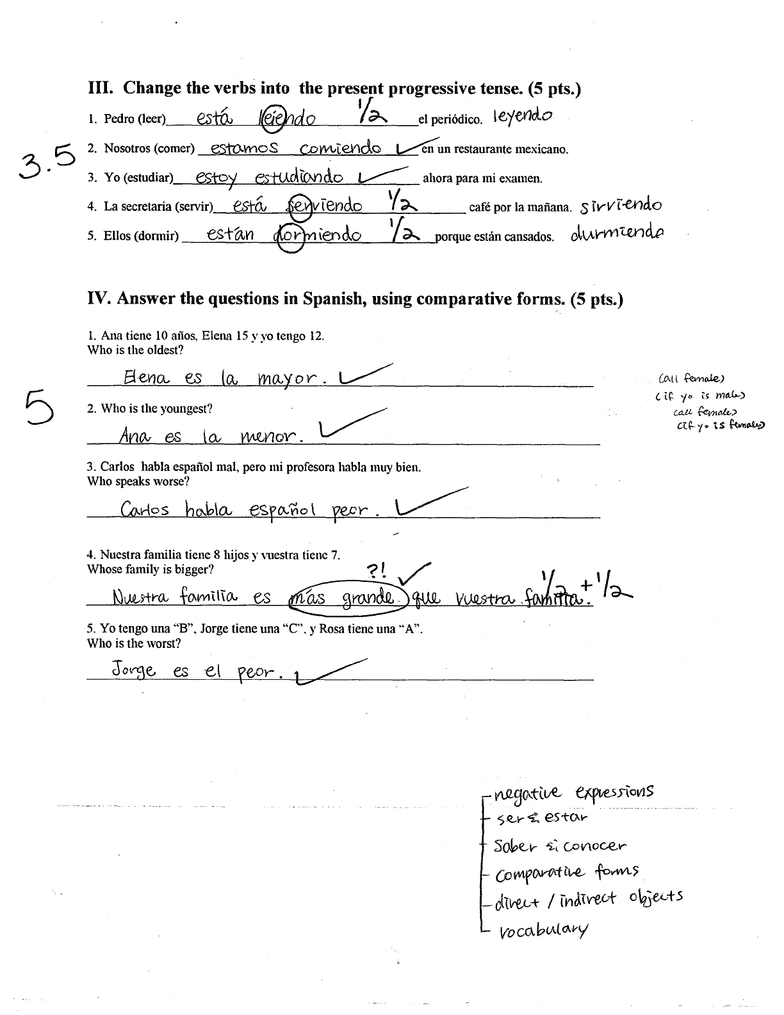 III. Change the verbs into the present progressive tense. (5 pts.)
1. Pedro (leer) está leiendo 1/2 el periódico. leyendo
3.5
2. Nosotros (comer) estamos comiendo ✓ en un restaurante mexicano.
3. Yo (estudiar) estoy estudiando ✓ ahora para mi examen.
4. La secretaria (servir) está serviendo 1/2 café por la mañana. sirviendo
5. Ellos (dormir) están dormiendo 1/2 porque están cansados. durmiendo
IV. Answer the questions in Spanish, using comparative forms. (5 pts.)
1. Ana tiene 10 años, Elena 15 y yo tengo 12.
Who is the oldest?
Elena es la mayor. ✓
(all female)
(if yo is male)
(all female)
(if yo is female)
5
2. Who is the youngest?
Ana es la menor. ✓
3. Carlos habla español mal, pero mi profesora habla muy bien.
Who speaks worse?
Carlos habla español peor. ✓
4. Nuestra familia tiene 8 hijos y vuestra tiene 7.
Whose family is bigger?
?! ✓
Nuestra familia es más grande que vuestra familia. 1/2 + 1/2
5. Yo tengo una “B”, Jorge tiene una “C”, y Rosa tiene una “A”.
Who is the worst?
Jorge es el peor. ✓
negative expressions
ser & estar
Saber & conocer
comparative forms
direct / indirect objects
vocabulary